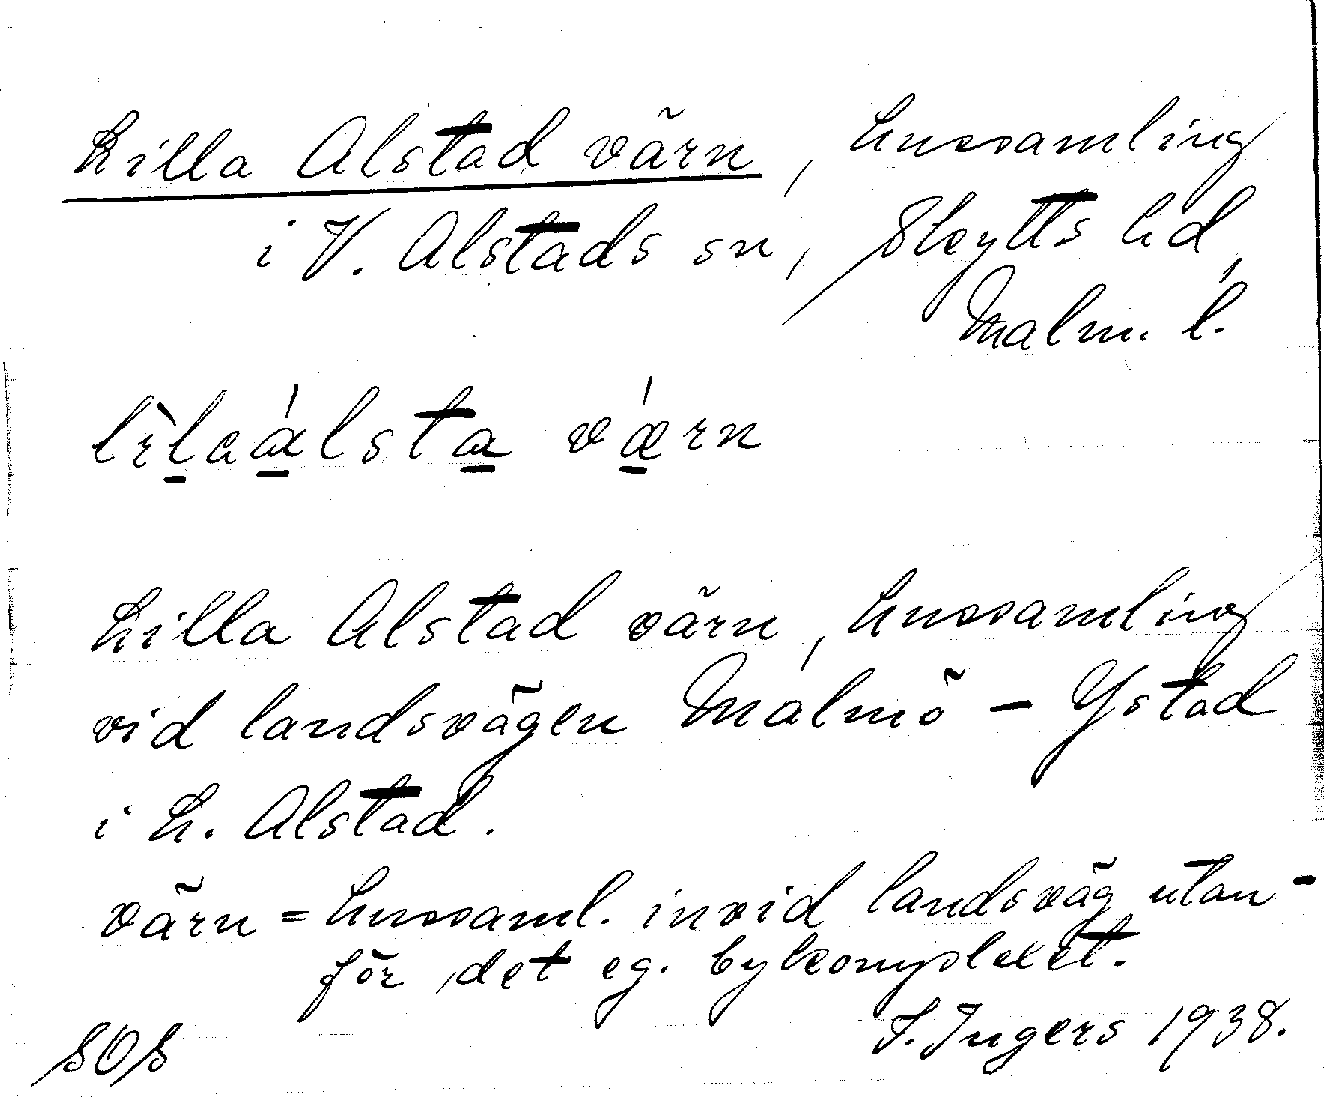 Lilla Alstad värn, hussamling
i V. Alstads sn, Skytts hd,
Malm. l.
lìlaálsta vǽrn
Lilla Alstad värn, hussamling
vid landsvägen Malmö – Ystad
i L. Alstad.
värn = hussaml. invid landsväg utan-
för det eg. bykomplexet.
I. Ingers 1938.
SOS